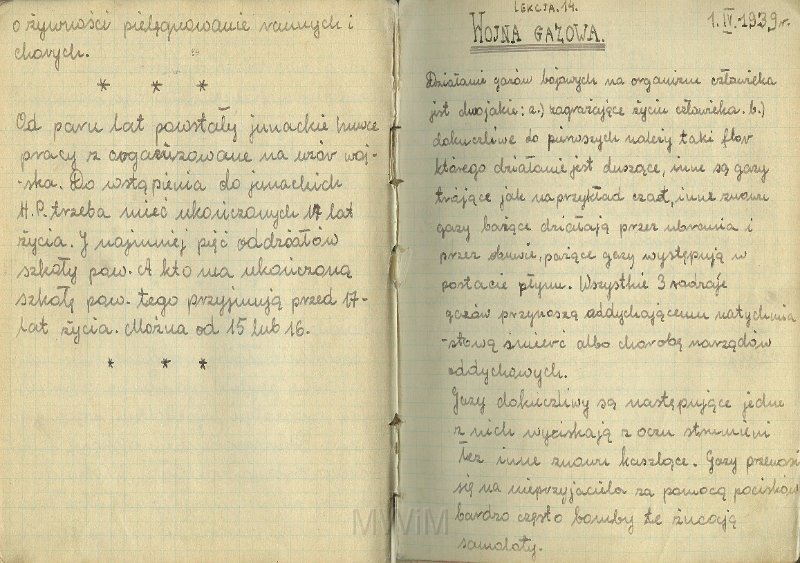 o żywności pielęgnowanie rannych i
chorych.
* * *
Od paru lat powstały junackie hufce
pracy z organizowane na wzór woj-
-ska. Do wstąpienia do junackich
H.P. trzeba mieć ukończonych 17 lat
życia. I najmniej pięć oddziałów
szkoły pow. A kto ma ukończoną
szkołę pow. tego przyjmują przed 17-
lat życia. Można od 15 lub 16.
* * *
LEKCJA. 14.
WOJNA GAZOWA. 1.IV.1939r.
Działanie gazów bojowych na organizm człowieka
jest dwojakie: a.) zagrażające życiu człowieka. b.)
dokuczliwe do pierwszych należy taki
którego działanie jest duszące, inne są gazy
trujące jak na przykład czad, inne znowu
gazy parzące działają przez ubrania i
przez obuwie, parzące gazy występują w
postacie płynu. Wszystkie 3 rodzaje
gazów przynoszą oddychającemu natychmia
-stową śmierć albo chorobę narządów
oddychowych.
Gazy dokuczliwy są następujące jedne
z nich wyciskają z oczu strumieni
łez inne znowu kaszlące. Gazy przenosi
się na nieprzyjaciela za pomocą pocisków
bardzo często bomby te zucają
samoloty.
MWiM